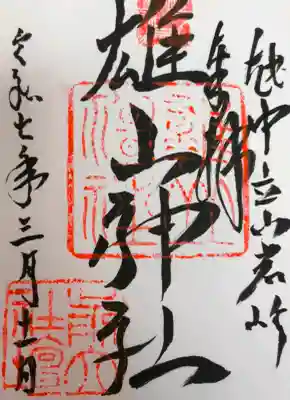 越中立山岩峅
奉拝
雄山神社
令和七年三月
前立社壇